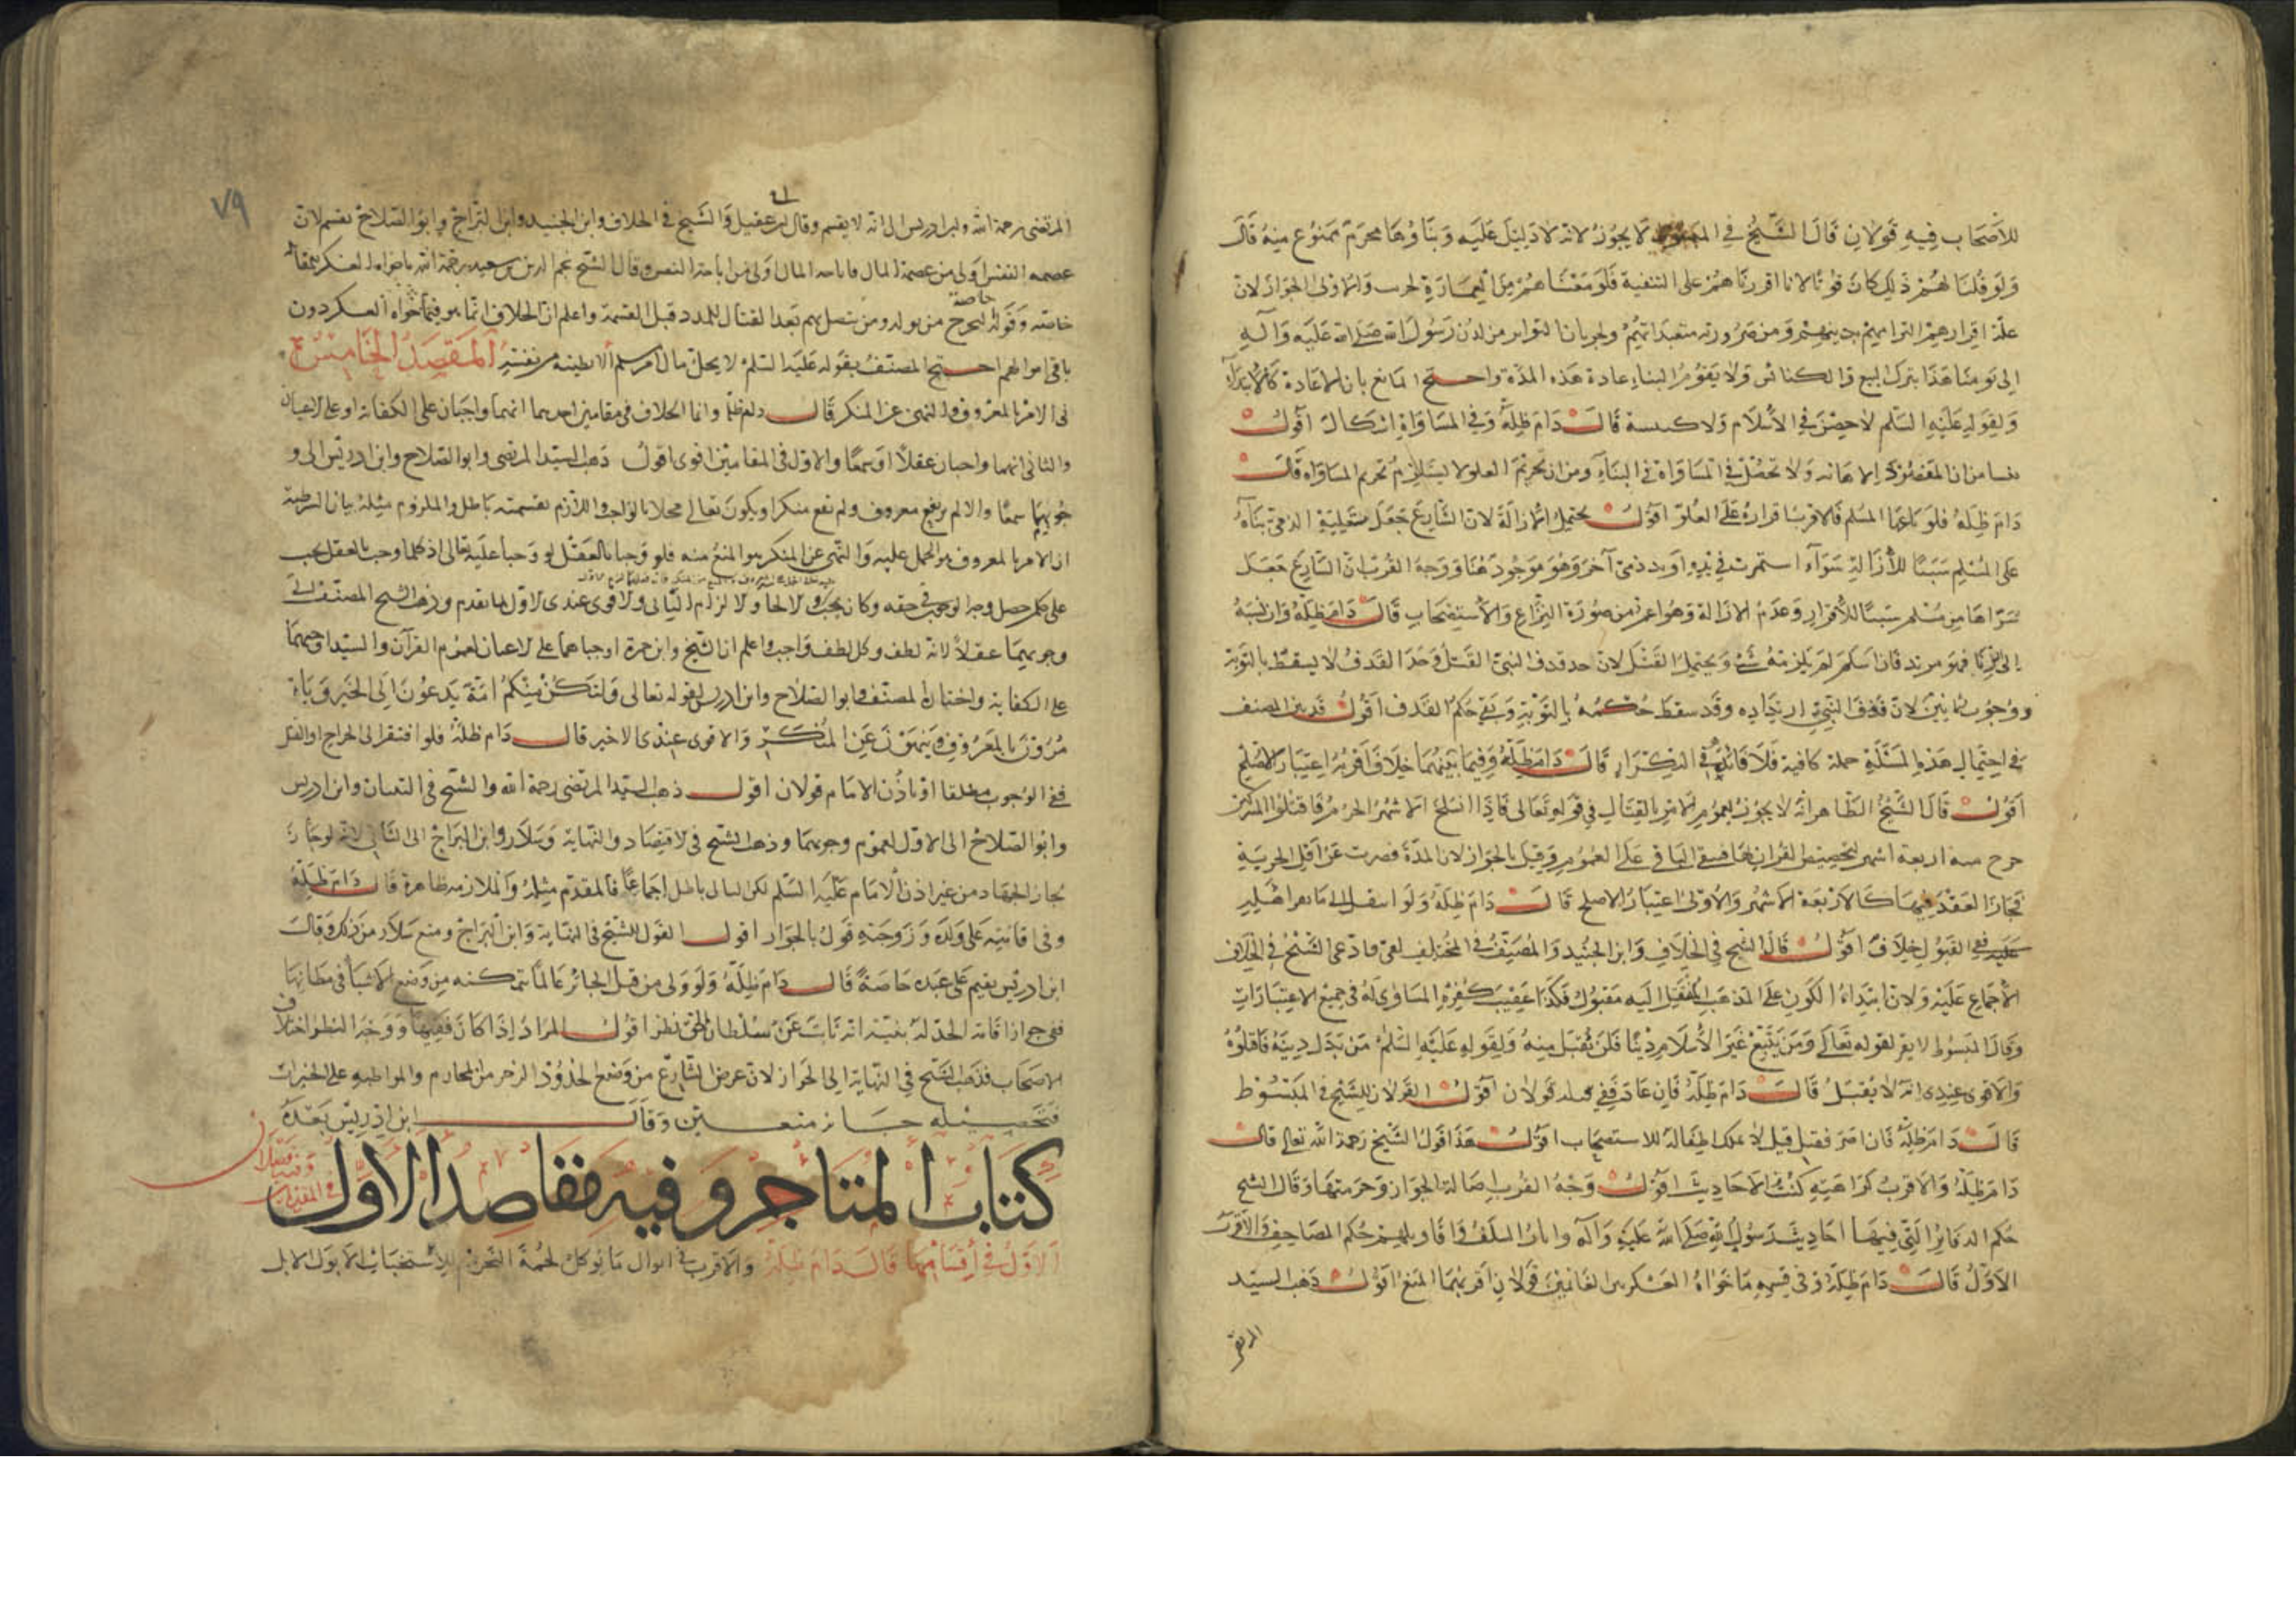 للأصحاب فيه قولان قال الشيخ في المبسوط لا يجوز لانه لا دليل عليه وبناؤها محرم ممنوع منه قال
ولو قلنا لهم ذلك كان قويا لانا اقررناهم على التبقية فلو منعناهم من العمارة لخرب والاولى الجواز لان
علة اقرارهم التزامهم بدينهم ومن ضرورته متعبداتهم ولجرياننا لتواتر من لدن رسول الله صلى الله عليه وآله
الى يومنا هذا بترك البيع والكنائس ولا يقوم البناء عادة هذه المدة واحتج المانع بان الاعادة كالابتداء
ولقوله عليه السلم لا حصن في الاسلام ولا كنيسة قال دام ظله وفي المساواة اشكال اقول
ينشا من ان المقصود الاهانة ولا تحصل في المساواة في البناء ومن ان تحريم العلو لا يستلزم تحريم المساواه قال
دام ظله فلو باعها المسلم فالاقرب اقراره على العلو اقول يحتمل الازالة لان الشارع جعل متعلية الذمي بناه
على المسلم سببا للازالة سواء استمرت في يده او يد ذمي آخر وهو موجود هنا ووجه القرب ان الشارع جعل
شراها من مسلم سببا للاقرار وعدم الازالة وهو اعم من صورة النزاع والاستصحاب قال دام ظله وان نسبه
الى الزنا فهو مرتد فان اسلم لم يلزمه شئ ويحتمل القتل لان حد قذف النبي القتل وحد القذف لا يسقط بالتوبة
ووجوب ثمانين لان قذف النبي ارتداده وقد سقط حكمه بالتوبة وبقي حكم القذف اقول قد بين المصنف
في احتمال هذه المسئلة جملة كافية فلا فائدة في التكرار قال دام ظله وفيما بينهما خلاف اقربه اعتبار الاصلح
اقول قال الشيخ الظاهر انه لا يجوز لعموم الامر بالقتال في قوله تعالى فاذا انسلخ الاشهر الحرم فاقتلوا المشركين
خرج منه اربعة اشهر لتخصيص القران لها فبقي الباقي على العموم وقيل بالجواز لان المدة قصرت عن اقل الجزية
فجاز العقد فيها كالاربعة الاشهر والاولى اعتبار الاصلح قال دام ظله ولو انتقل الى ما يقر اهله
عليه ففي القبول خلاف اقول قال الشيخ في الخلاف وابن الجنيد والمصنف في المختلف نعم وادعى الشيخ في الخلاف
الاجماع عليه ولان ابتداء الكون على المذهب المنتقل اليه مقبول فكذا عقيب كفره المساوي له في جميع الاعتبارات
وقال المبسوط لا يقر لقوله تعالى ومن يبتغ غير الاسلام دينا فلن يقبل منه ولقوله عليه السلم من بدل دينه فاقتلوه
والاقوى عندي انه لا يقبل قال دام ظله فان عاد ففي قبوله قولان اقول القولان للشيخ في المبسوط
قال دام ظله فان اصر فقتل قيل لا يملك اطفاله للاستصحاب اقول هذا قول الشيخ رحمة الله تعالى قال
دام ظله والاقرب كراهية كتب الاحاديث اقول وجه القرب اصالة الجواز وحرمتها وقال الشيخ
حكم الدفاتر التي فيها احاديث رسول الله صلى الله عليه وآله واثار السلف واقاويلهم حكم المصاحف والاقرب
الاول قال دام ظله وفي قسمه ما حواه العسكر بين الغانمين قولان اقربهما المنع اقول ذهب السيد
المرتضى
٧٩
المرتضى رحمة الله وابن ادريس الى انه لا يقسم وقال ابن عقيل والشيخ في الخلاف وابن الجنيد وابن البراج وابو الصلاح تقسم لان
عصمه النفس اولى من عصمة المال فاباحه المال اولى من اباحة النفس وقال الشيخ نجم الدين بن سعيد رحمة الله ما حواه العسكر للمقاتله
خاصة وقوله يخرج من يولد ومن يتصل بهم بعد القتال للمدد قبل القسمة واعلم ان الخلاف انما هو فيما حواه العسكر دون
باقي اموالهم احتج المصنف بقوله عليه السلم لا يحل مال امرء مسلم الا بطيبة من نفسه المقصد الخامس
في الامر بالمعروف والنهي عن المنكر قال دام ظله وانما الخلاف في مقامين احدهما انهما واجبان على الكفاية او على الاعيان
والثاني انهما واجبان عقلا او سمعا والاول في المقامين اقوى اقول ذهب السيد المرتضى وابو الصلاح وابن ادريس الى و
جوبهما سمعا والا لم يرتفع معروف ولم يقع منكر او يكون تعالى مخلا بالواجب واللازم بقسميه باطل والملزوم مثله بيان الشرطية
ان الامر بالمعروف هو الحمل عليه والنهي عن المنكر هو المنع منه فلو وجبا بالعقل لو وجبا عليه تعالى اذ كلما وجب بالعقل يجب
على كل من حصل وجه الوجوب في حقه وكان يجب والا لجاء ولا لزم الثاني والاقوى عندي الاول لما تقدم وذهب الشيخ المصنف الى
وجوبهما عقلا لانه لطف وكل لطف واجب واعلم ان الشيخ وابن حمزة اوجباهما على الاعيان لعموم القرآن والسيد اوجبهما
على الكفاية واختاره المصنف وابو الصلاح وابن ادريس لقوله تعالى ولتكن منكم امة يدعون الى الخير ويا
مرون بالمعروف وينهون عن المنكر والاقوى عندي الاخير قال دام ظله فلو افتقر الى الجراح او القتل
ففي الوجوب مطلقا او باذن الامام قولان اقول ذهب السيد المرتضى رحمة الله والشيخ في التبيان وابن ادريس
وابو الصلاح الى الاول لعموم وجوبهما وذهب الشيخ في الاقتصاد والنهاية وسلار وابن البراج الى الثاني لانه لو جاز
لجاز الجهاد من غير اذن الامام عليه السلم لكن التالي باطل اجماعا فالمقدم مثله والملازمه ظاهرة قال دام ظله
وفي اقامته على ولده وزوجته قول بالجواز اقول القول للشيخ في النهاية وابن البراج ومنع سلار من ذلك وقال
ابن ادريس يقيم على عبده خاصة قال دام ظله ولو ولى من قبل الجائر عالما بتمكنه من وضع الاشياء في مظانها
ففي جواز اقامة الحد له بنية انه نائب عن سلطان الحق نظر اقول المراد اذا كان فقيها ووجه النظر اختلاف
الاصحاب فذهب الشيخ في النهاية الى الجواز لان غرض الشارع من وضع الحدود الزجر من المحارم والمواظبه على الخيرات
فتحصيله جائز متعين وقال ابن ادريس بعده
كتاب المتاجر وفيه مقاصد الاول
الاول في اقسامها قال دام ظله والاقرب في ابوال ما يؤكل لحمه التحريم للاستخباث الا بول الابل